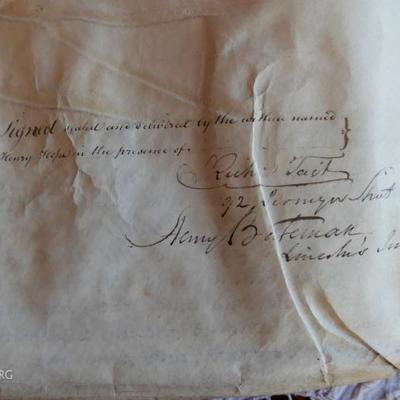 Signed sealed and delivered by the within named
Henry Hope in the presence of
Richd Tait
92 Jermyn Street
Henry Bateman
Lincoln's Inn
RG